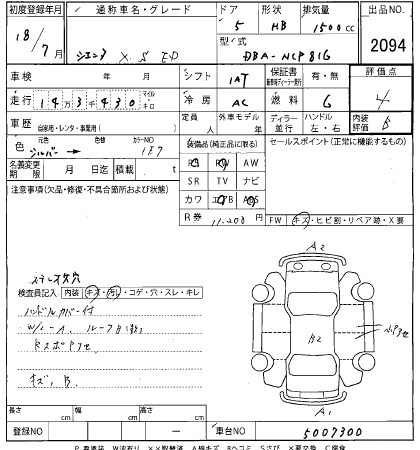 初度登録年月 通称車名・グレード ドア 形状 排気量 出品NO
18/7月 シエンタ X S ED 5 HB 1500cc 2094
型式 DBA-NCP81G
車検 年 月 シフト IAT 保証書 有・無 評価点
走行 143430 マイル キロ 冷房 AC 燃料 G 4
車歴 自家用・レンタ・事業用( ) 定員 人 外車モデル 年 ディーラー 並行 ハンドル 左・右 内装評価 B
色 元色 シルバー 色替 カラーNO 1E7
装備品(純正品に限る) セールスポイント(正常に機能するもの)
名義変更期限 月 日迄 積載 t
PS PW AW
SR TV ナビ
注意事項(欠品・修復・不具合箇所および状態)
カワ エアB ABS
R券 11.200円
FW キズ・ヒビ割・リペア跡・X要
ステレオ欠穴
検査員記入 内装 キズ・汚・コゲ・穴・スレ・キレ
ハンドルカバー付
キズ、B
A2
B2
A1
長さ cm 幅 cm 高さ cm
登録NO 車台NO 5007300